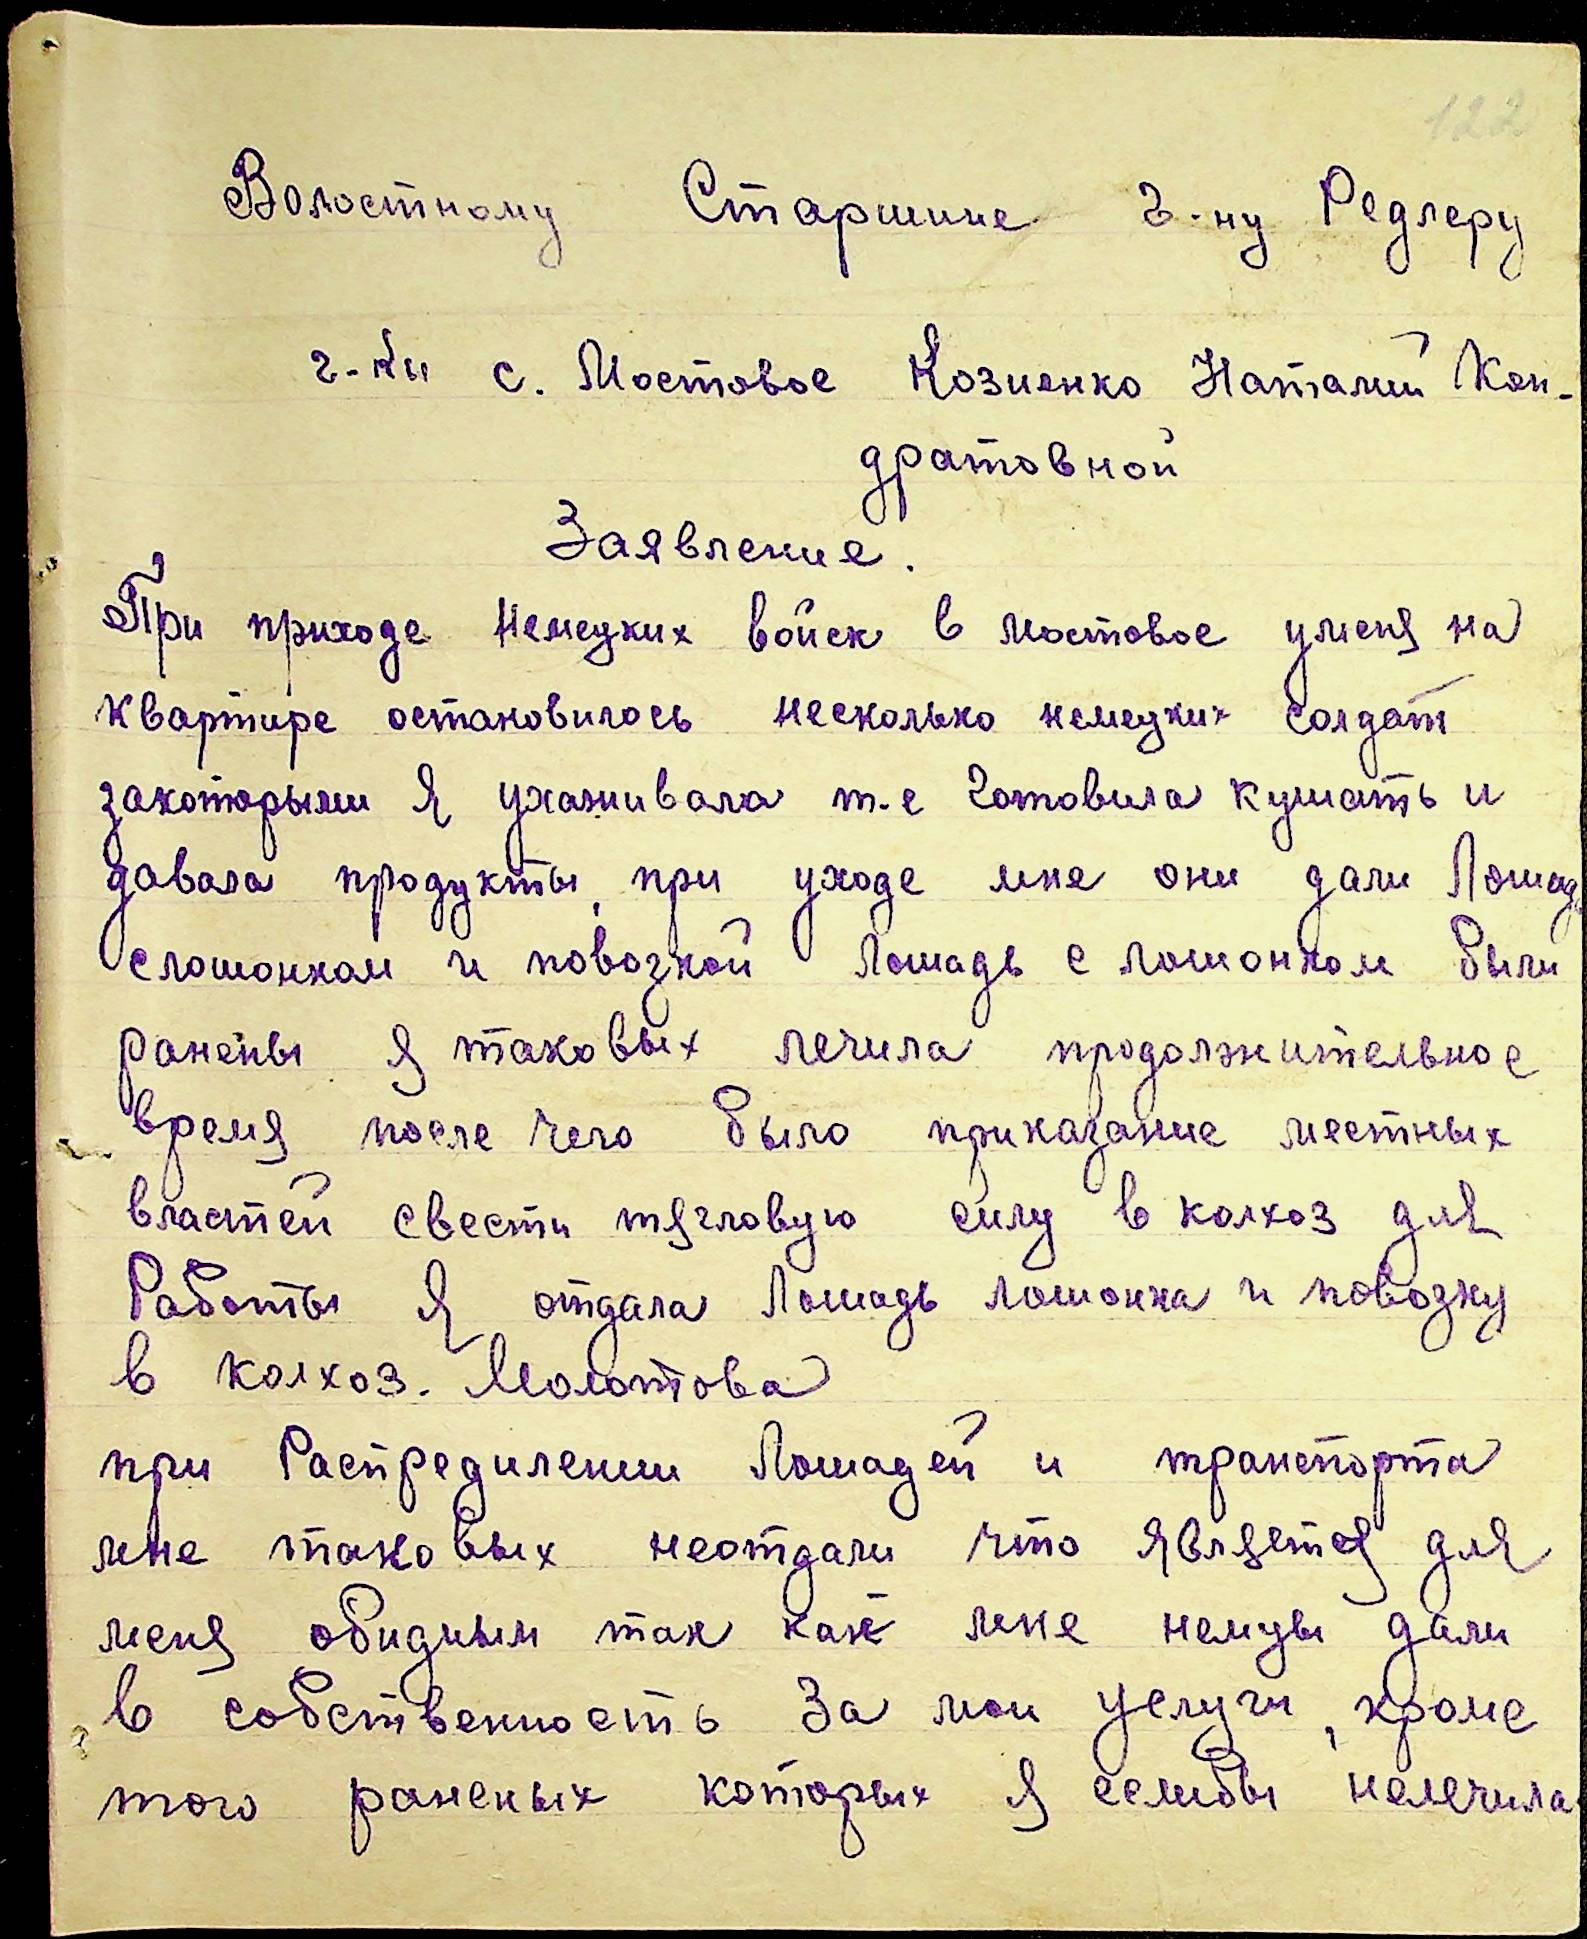 122
Волостному Старшине г-ну Редлеру
г-ки с. Мостовое Козиенко Наталии Кон-
дратовной
Заявление.
При приходе Немецких войск в мостовое уменя на
квартире остановилось несколько немецких солдат
закоторыми Я ухаживала т-е готовила кушать и
давала продукты, при уходе мне они дали Лошадь
слошонком и повозкой Лошадь с лошонком были
ранены Я таковых лечила продолжительное
время после чего было приказание местных
властей свести тягловую силу в колхоз для
Работы Я отдала Лошадь лошонка и повозку
в колхоз. Молотова
при Распредилении Лошадей и транспорта
мне таковых неотдали что является для
меня обидным так как мне немцы дали
в собственность За мои услуги, кроме
того раненых которых я еслибы нелечила